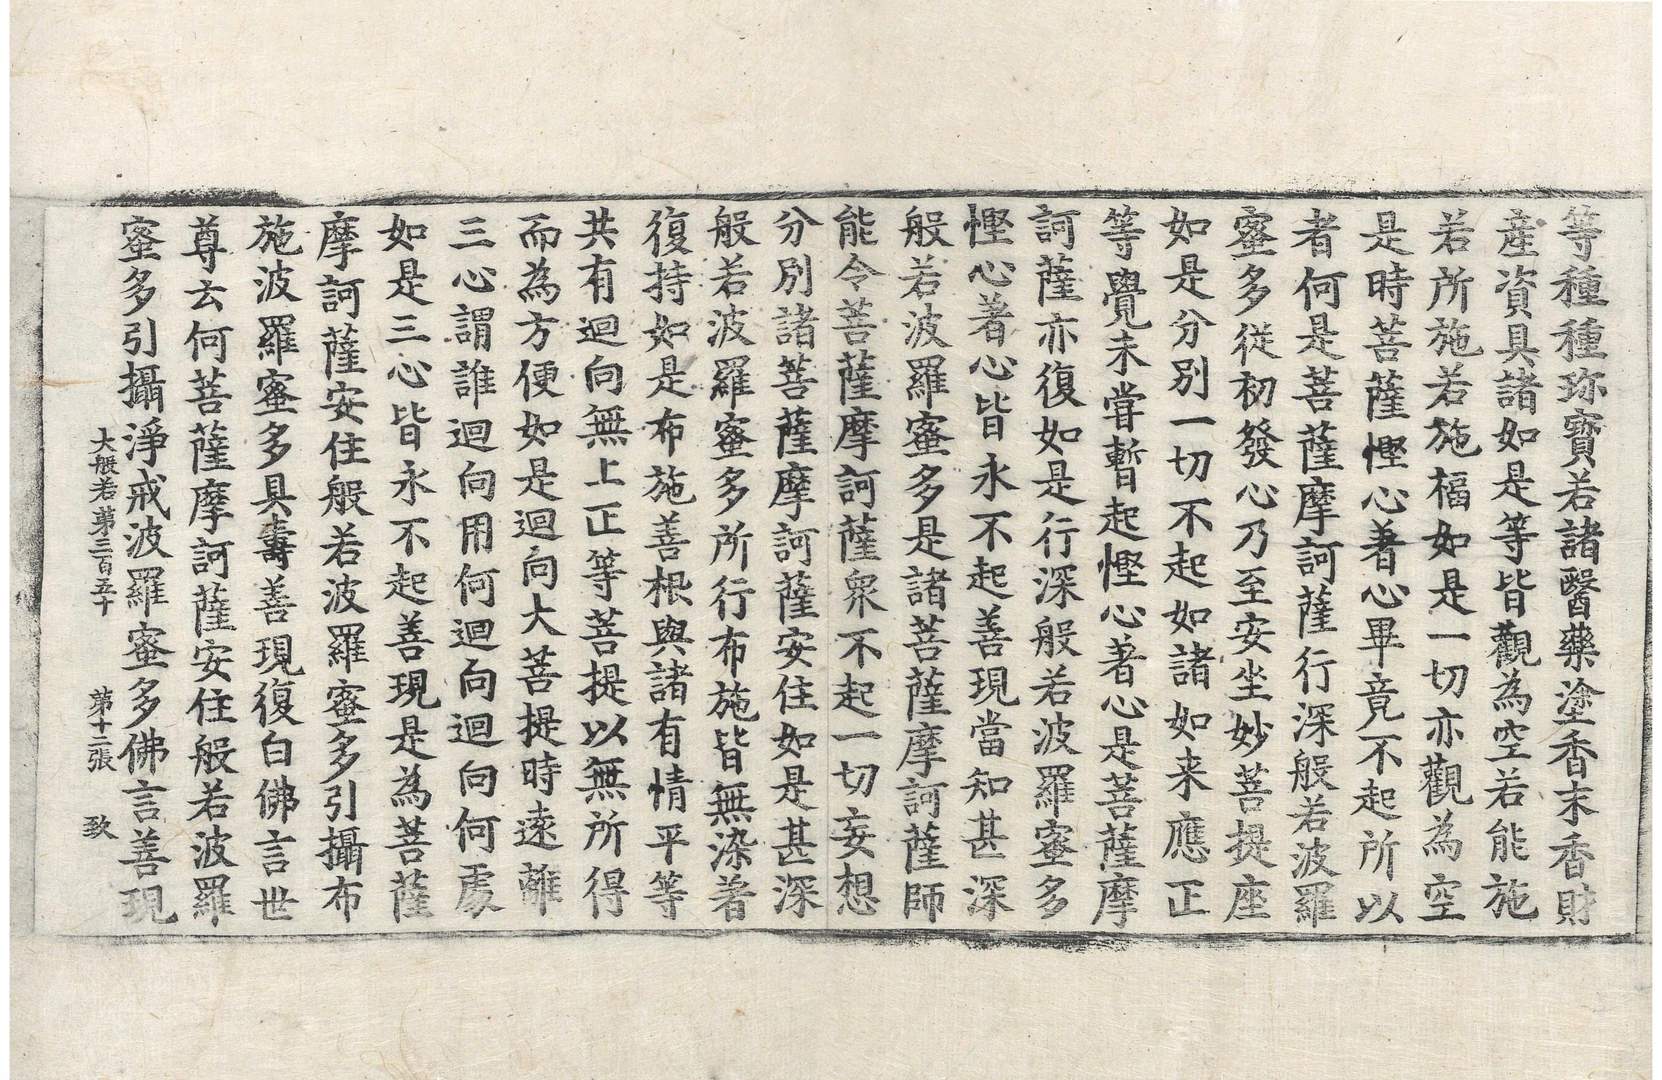 等種種珎寶若諸醫藥塗香末香財
産資具諸如是等皆觀為空若能施
若所施若施福如是一切亦觀為空
是時菩薩慳心著心畢竟不起所以
者何是菩薩摩訶薩行深般若波羅
蜜多從初發心乃至安坐妙菩提座
如是分別一切不起如諸如来應正
等覺未甞暫起慳心著心是菩薩摩
訶薩亦復如是行深般若波羅蜜多
慳心著心皆永不起善現當知甚深
般若波羅蜜多是諸菩薩摩訶薩師
能令菩薩摩訶薩衆不起一切妄想
分別諸菩薩摩訶薩安住如是甚深
般若波羅蜜多所行布施皆無染著
復持如是布施善根與諸有情平等
共有迴向無上正等菩提以無所得
而為方便如是迴向大菩提時遠離
三心謂誰迴向用何迴向迴向何處
如是三心皆永不起善現是為菩薩
摩訶薩安住般若波羅蜜多引攝布
施波羅蜜多具壽善現復白佛言世
尊云何菩薩摩訶薩安住般若波羅
蜜多引攝淨戒波羅蜜多佛言善現
大般若第三百五十 第十二張 致